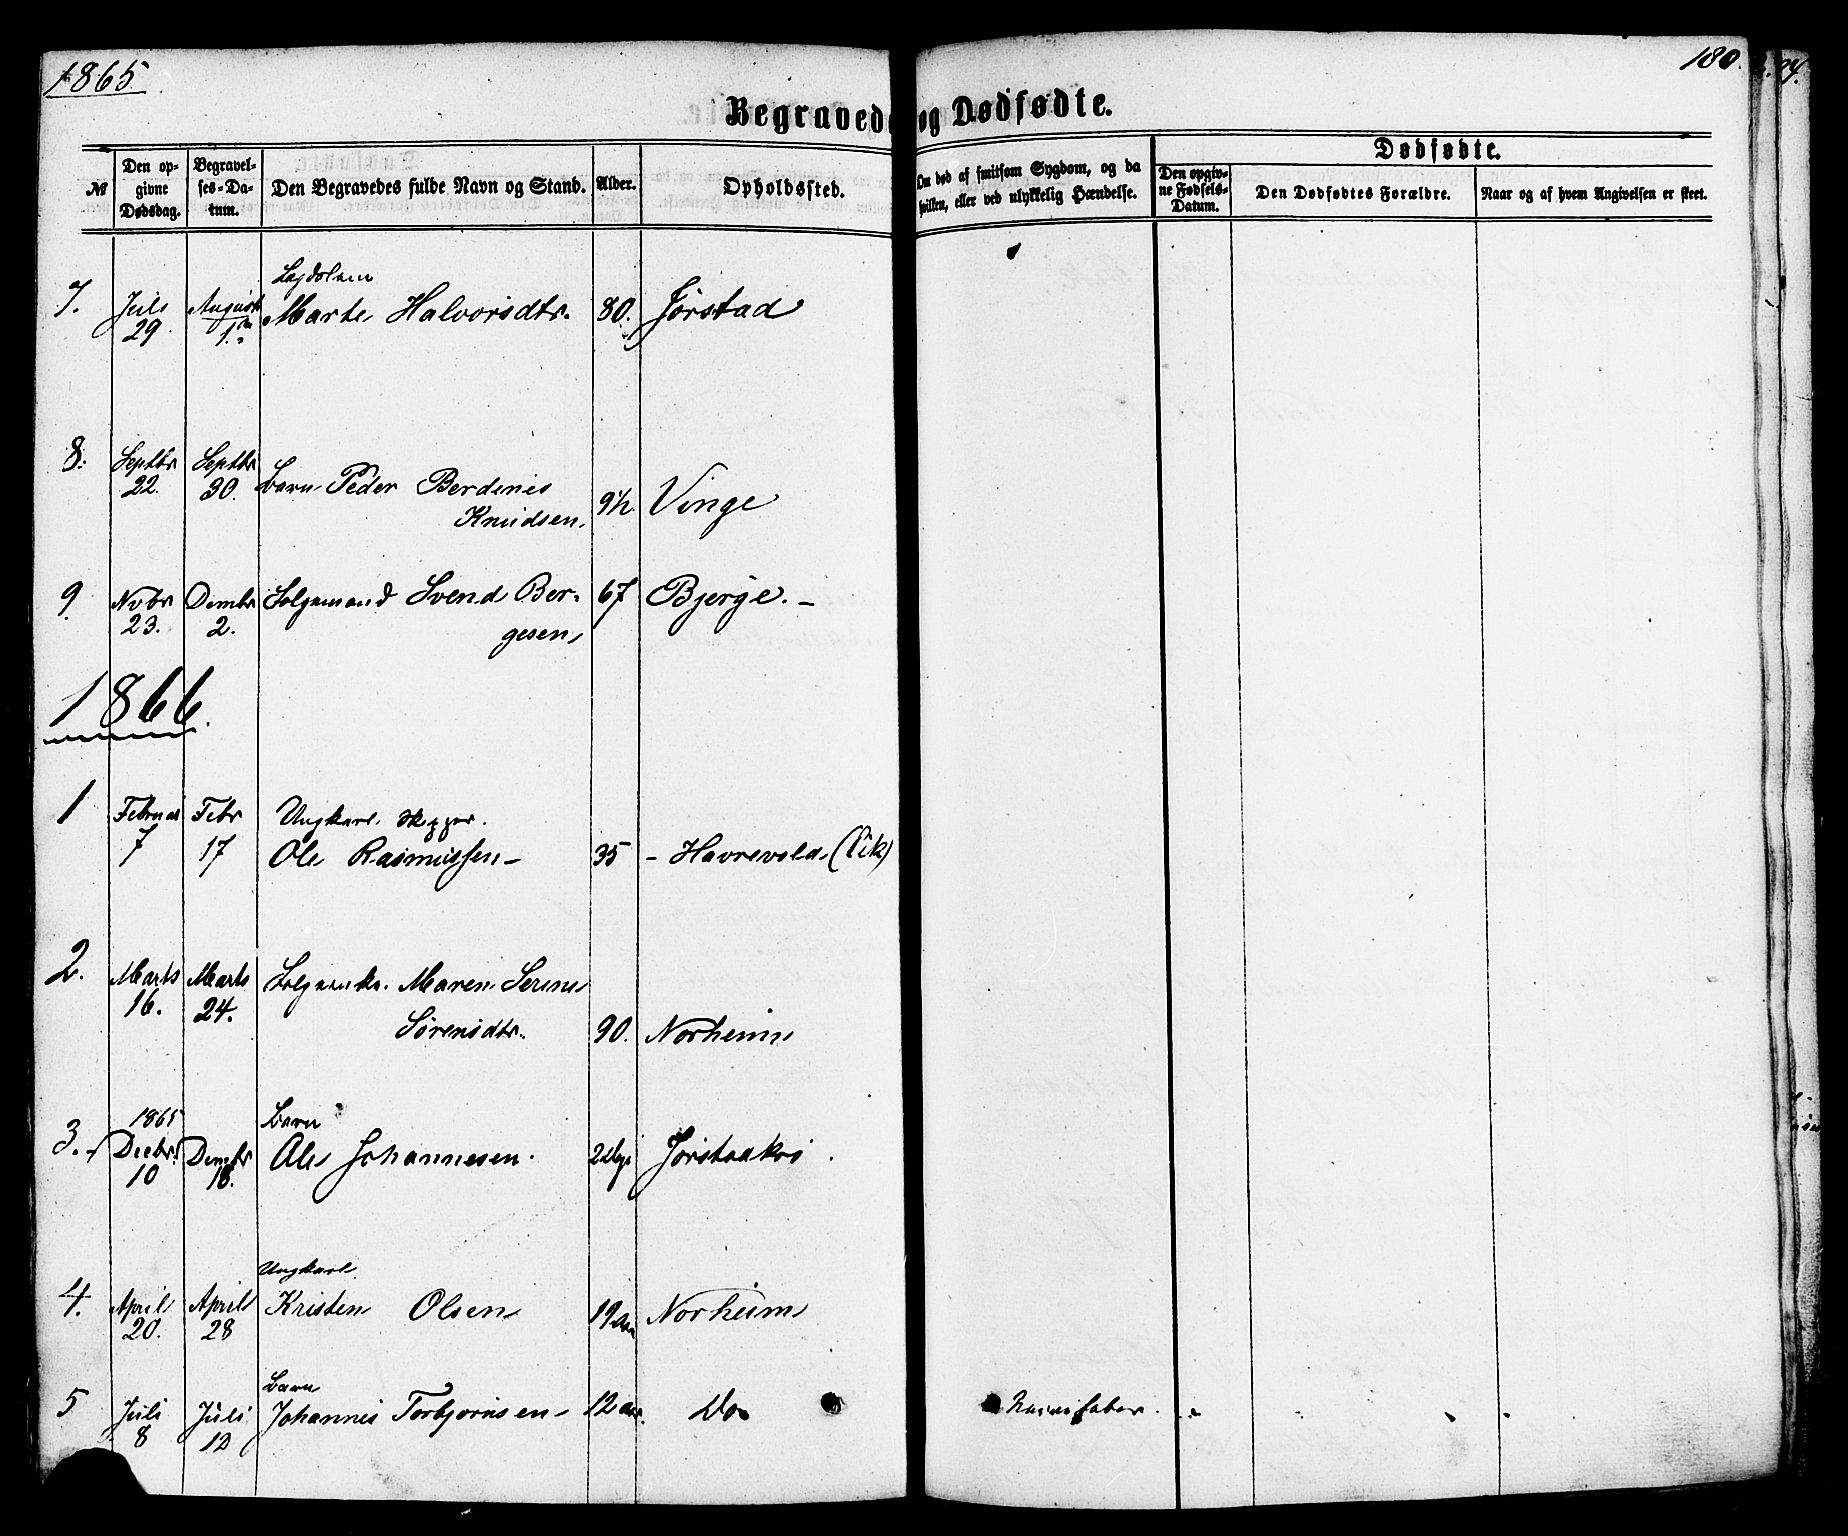 1865.
180.
Begravede og Dødfødte.
Dødfødte.
№
Den op-
givne
Dødsdag.
Begravel-
ses-Da-
tum.
Den Begravedes fulde Navn og Stand.
Alder.
Opholdssted.
Om død af smitsom Sygdom, og da
hvilken, eller ved ulykkelig Hændelse.
Den opgiv-
ne Fødsels-
Datum.
Den Dødfødtes Forældre.
Naar og af hvem Angivelsen er skeet.
Lægdslem
7. Juli 29 August 1. Marte Halvorsdtr. 80. Jørstad
8. Septbr 22. Septbr 30. Barn Peder Berdines
Knudsen. 9½ Vinge
9. Novbr 23. Decmbr 2. Folgemand Svend Ber-
gesen 67 Bjerge. –
1866.
1 Februar 7 Febr 17 Ungkarl Skipper.
Ole Rasmussen – 35 – Havrevold (Vik)
2. Marts 16. Marts 24. Folgeenke Maren Serine
Sørensdtr. 90. Norheim
3. 1865 Decbr. 10 Decmbr 18. Barn
Ole Johannesen. 2 Jørstadkro.
4. April 20. April 28 Ungkarl
Kristen Olsen 19 aar Norheim
5 Juli 8 Juli 12 Barn
Johannes Torbjørnsen – 12 aar. Do Nervefeber.